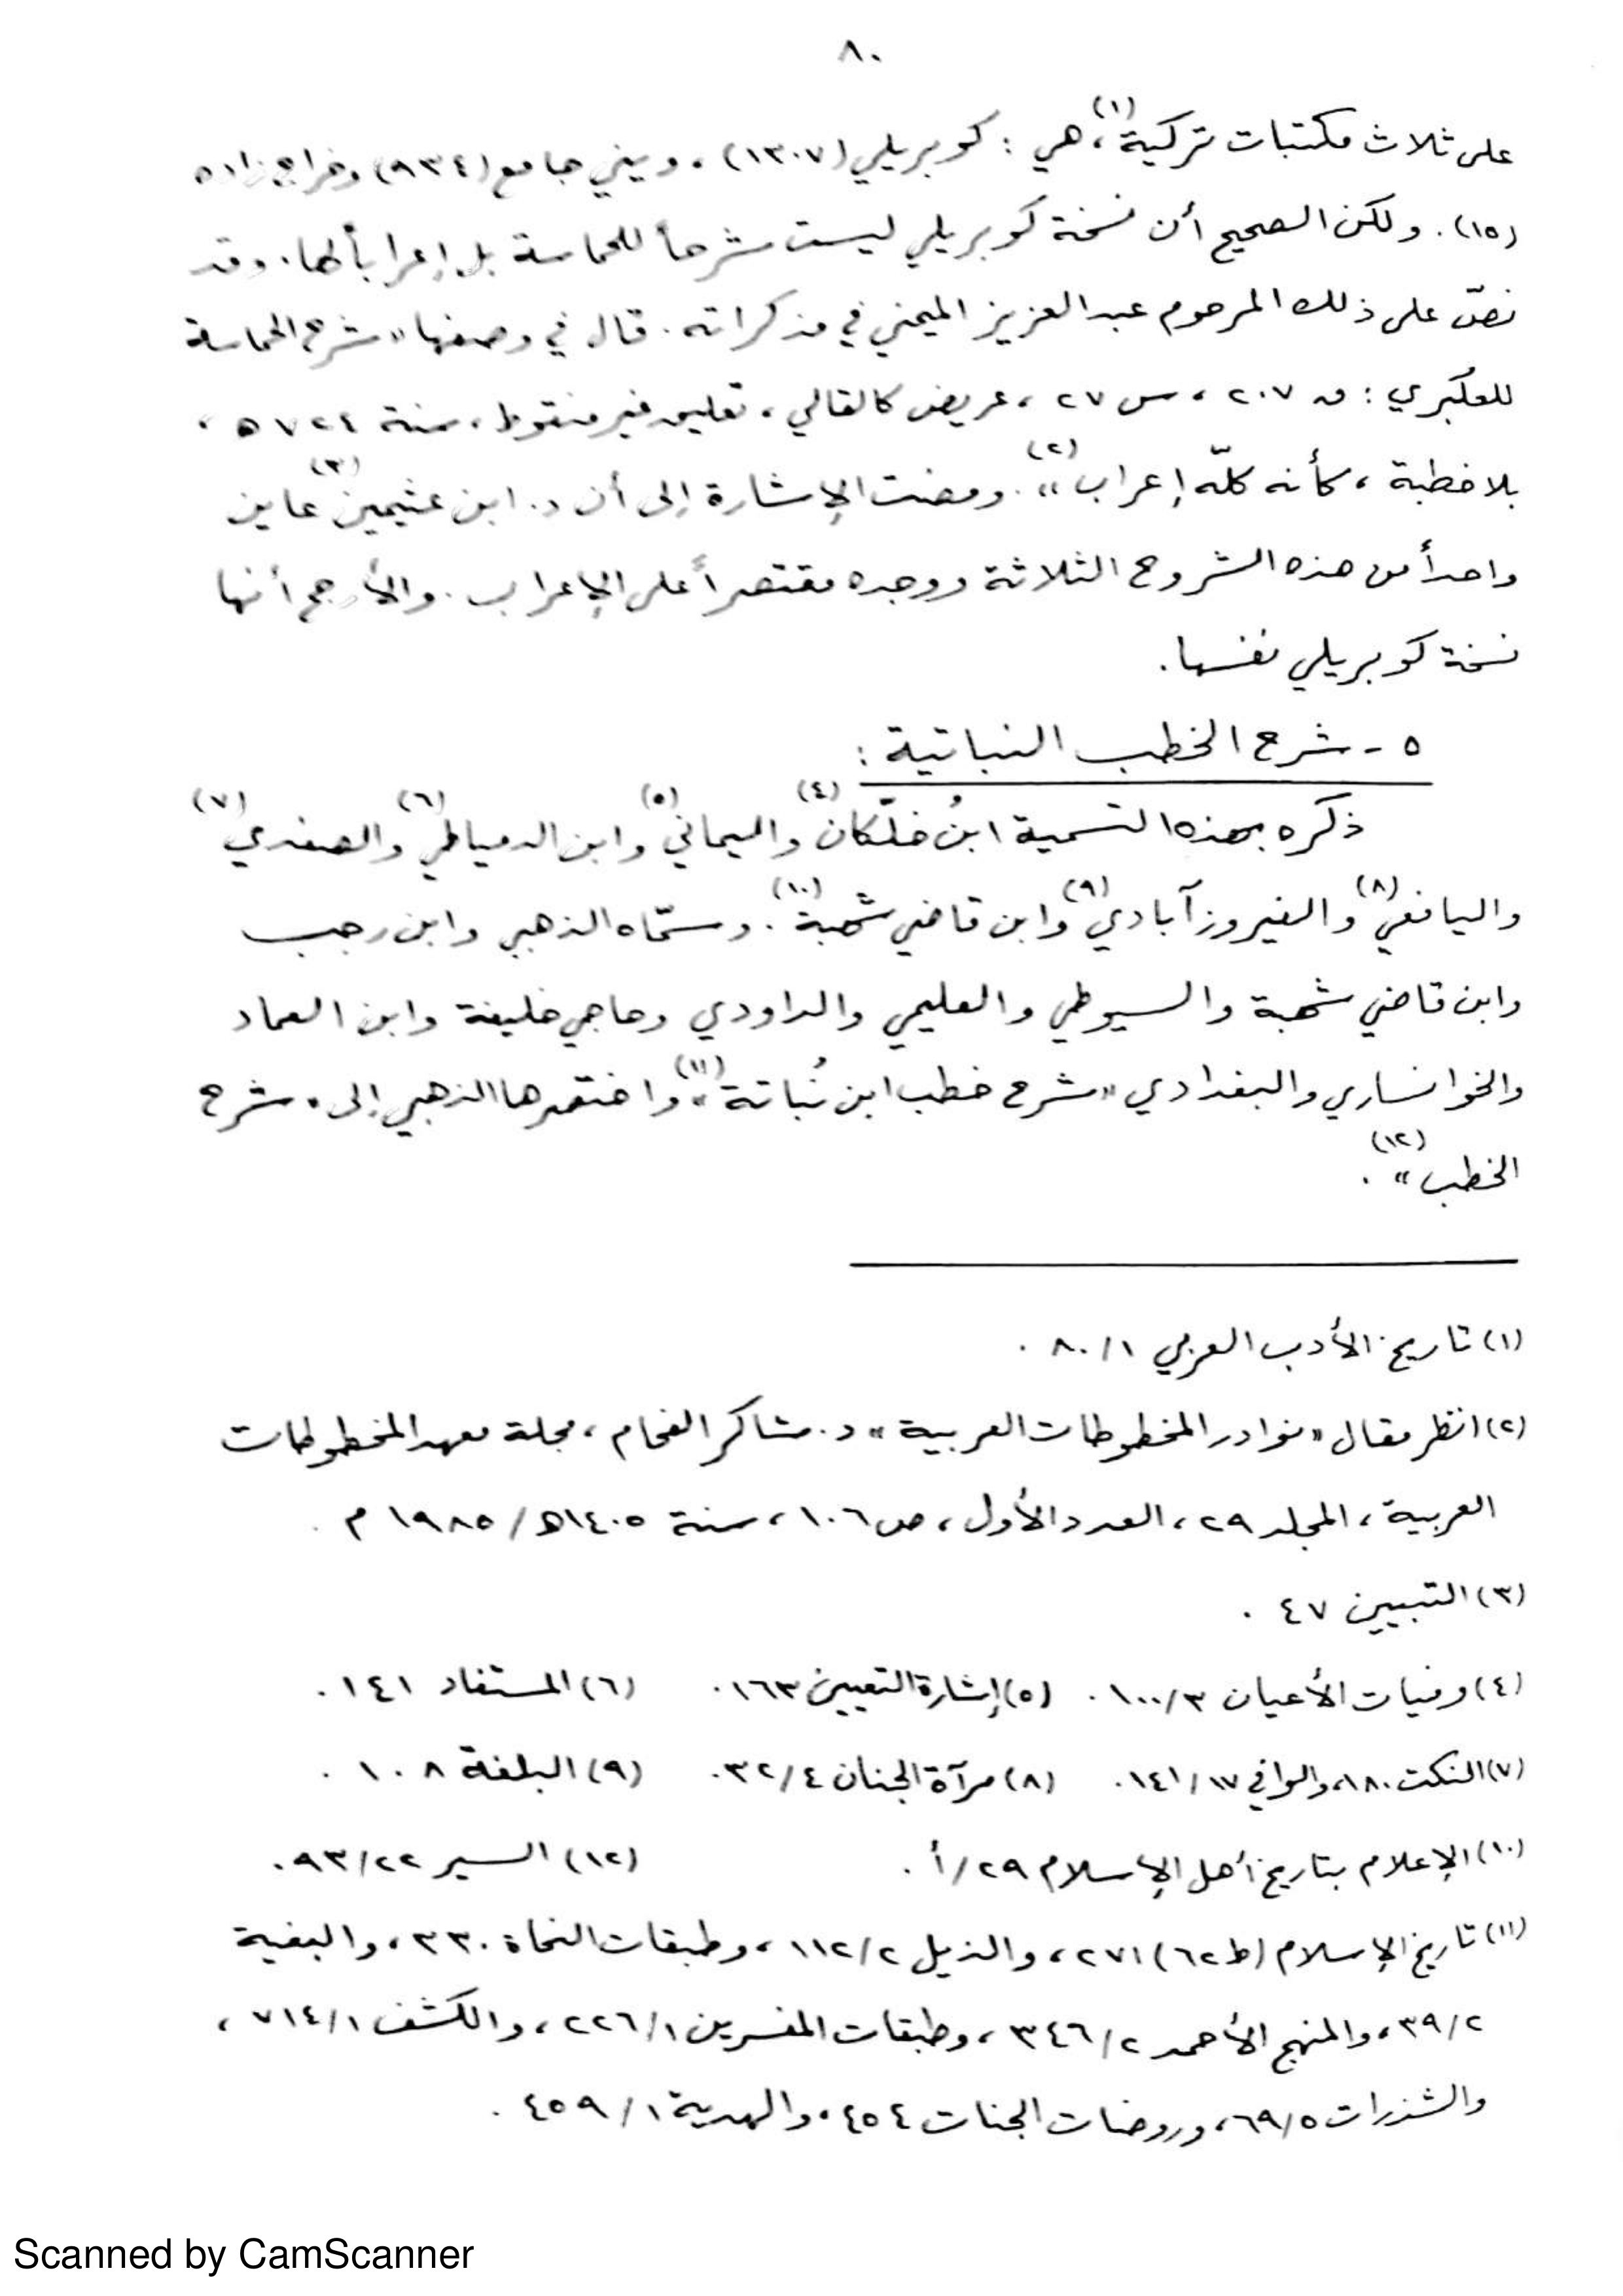 ٨٠
على ثلاث مكتبات تركية(١)، هي : كوبريلي (١٣٠٧) ، ويني جامع (٩٣٤) وخراججازاده
(١٥) . ولكن الصحيح أن نسخة كوبريلي ليست شرحاً للحماسة بل إعراباً لها. وقد
نصّ على ذلك المرحوم عبد العزيز الميمني في مذكراته . قال في وصفها «شرح الحماسة
للعكبري : ق ٢٠٧ ، س ٢٧ ، عريض كالقالي ، تعليق غير منقوط ، سنة ٧٢٤ ه ،
بلا خطبة ، كأنه كلّه إعراب»(٢) . ومضت الإشارة إلى أن د. ابن عثيمين(٣) عاين
واحداً من هذه الشروح الثلاثة ووجده مقتصراً على الإعراب . والأرجح أنها
نسخة كوبريلي نفسها .
٥ - شرح الخطب النباتية :
ذكره بهذه التسمية ابنُ خلّكان(٤) واليماني(٥) وابن الدمياطي(٦) والصفدي(٧)
واليافعي(٨) والفيروزآبادي(٩) وابن قاضي شهبة(١٠) . وسمّاه الذهبي وابن رجب
وابن قاضي شهبة والسيوطي والعليمي والداودي وحاجي خليفة وابن العماد
والخوانساري والبغدادي «شرح خطب ابن نُباتة»(١١) واختصرها الذهبي إلى «شرح
الخطب»(١٢) .
(١) تاريخ الأدب العربي ٨٠/١ .
(٢) انظر مقال «نوادر المخطوطات العربية» د. شاكر الفحام ، مجلة معهد المخطوطات
العربية ، المجلد ٢٩ ، العدد الأول ، ص ١٠٦ ، سنة ١٤٠٥ه / ١٩٨٥ م .
(٣) التبيين ٤٧ .
(٤) وفيات الأعيان ١٠٠/٣ . (٥) إشارة التعيين ١٦٣ . (٦) المستفاد ١٤١ .
(٧) النكت ١٨٠، والوافي ١٤١/١٧ . (٨) مرآة الجنان ٣٢/٤ . (٩) البلغة ١٠٨ .
(١٠) الإعلام بتاريخ أهل الإسلام ٢٩/أ . (١٢) السير ٩٣/٢٢ .
(١١) تاريخ الإسلام (ط ٦٢) ٢٧١ ، والذيل ١١٢/٢ ، وطبقات النحاة ٣٣٠ ، والبغية
٣٩/٢ ، والمنهج الأحمد ٣٤٦/٢ ، وطبقات المفسرين ٢٢٦/١ ، والكشف ٧١٤/١ ،
والشذرات ٦٩/٥ ، وروضات الجنات ٤٥٤ ، والهدية ٤٥٩/١ .
Scanned by CamScanner